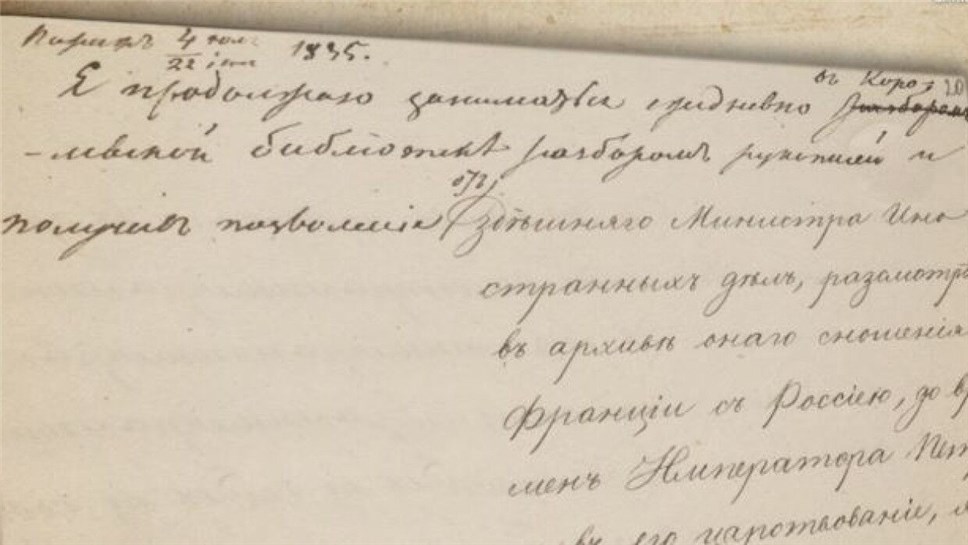 Парижъ 4/22 1835.
Я продолжаю заниматься ежедневно въ Коро
-левской библіотекѣ разборомъ рукописей и
получивъ позволеніе отъ здѣшняго Министра Ино
странныхъ дѣлъ, разсмотр
въ архивѣ онаго сношенія
Франціи съ Россіею, до вр
менъ Императора Пет
въ его царствованіе,